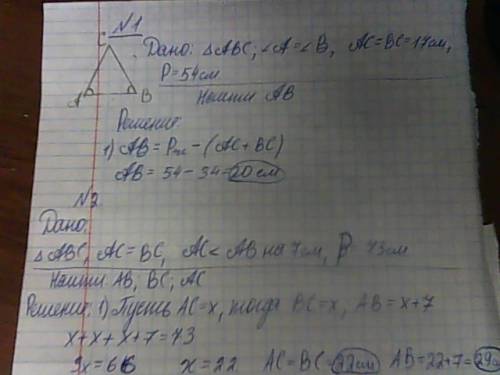 N1
C
Дано: △ABC, ∠A=∠B, AC=BC=17см,
P=54см
Найти AB
A B
Решение:
1) AB = P - (AC+BC)
AB = 54 - 34 = 20 см
N2
Дано:
△ABC, AC=BC, AC < AB на 7см, P 73см
Найти AB, BC, AC
Решение: 1) Пусть AC=x, тогда BC=x, AB=x+7
x+x+x+7=73
3x=66 x=22 AC=BC=22см AB=22+7=29см